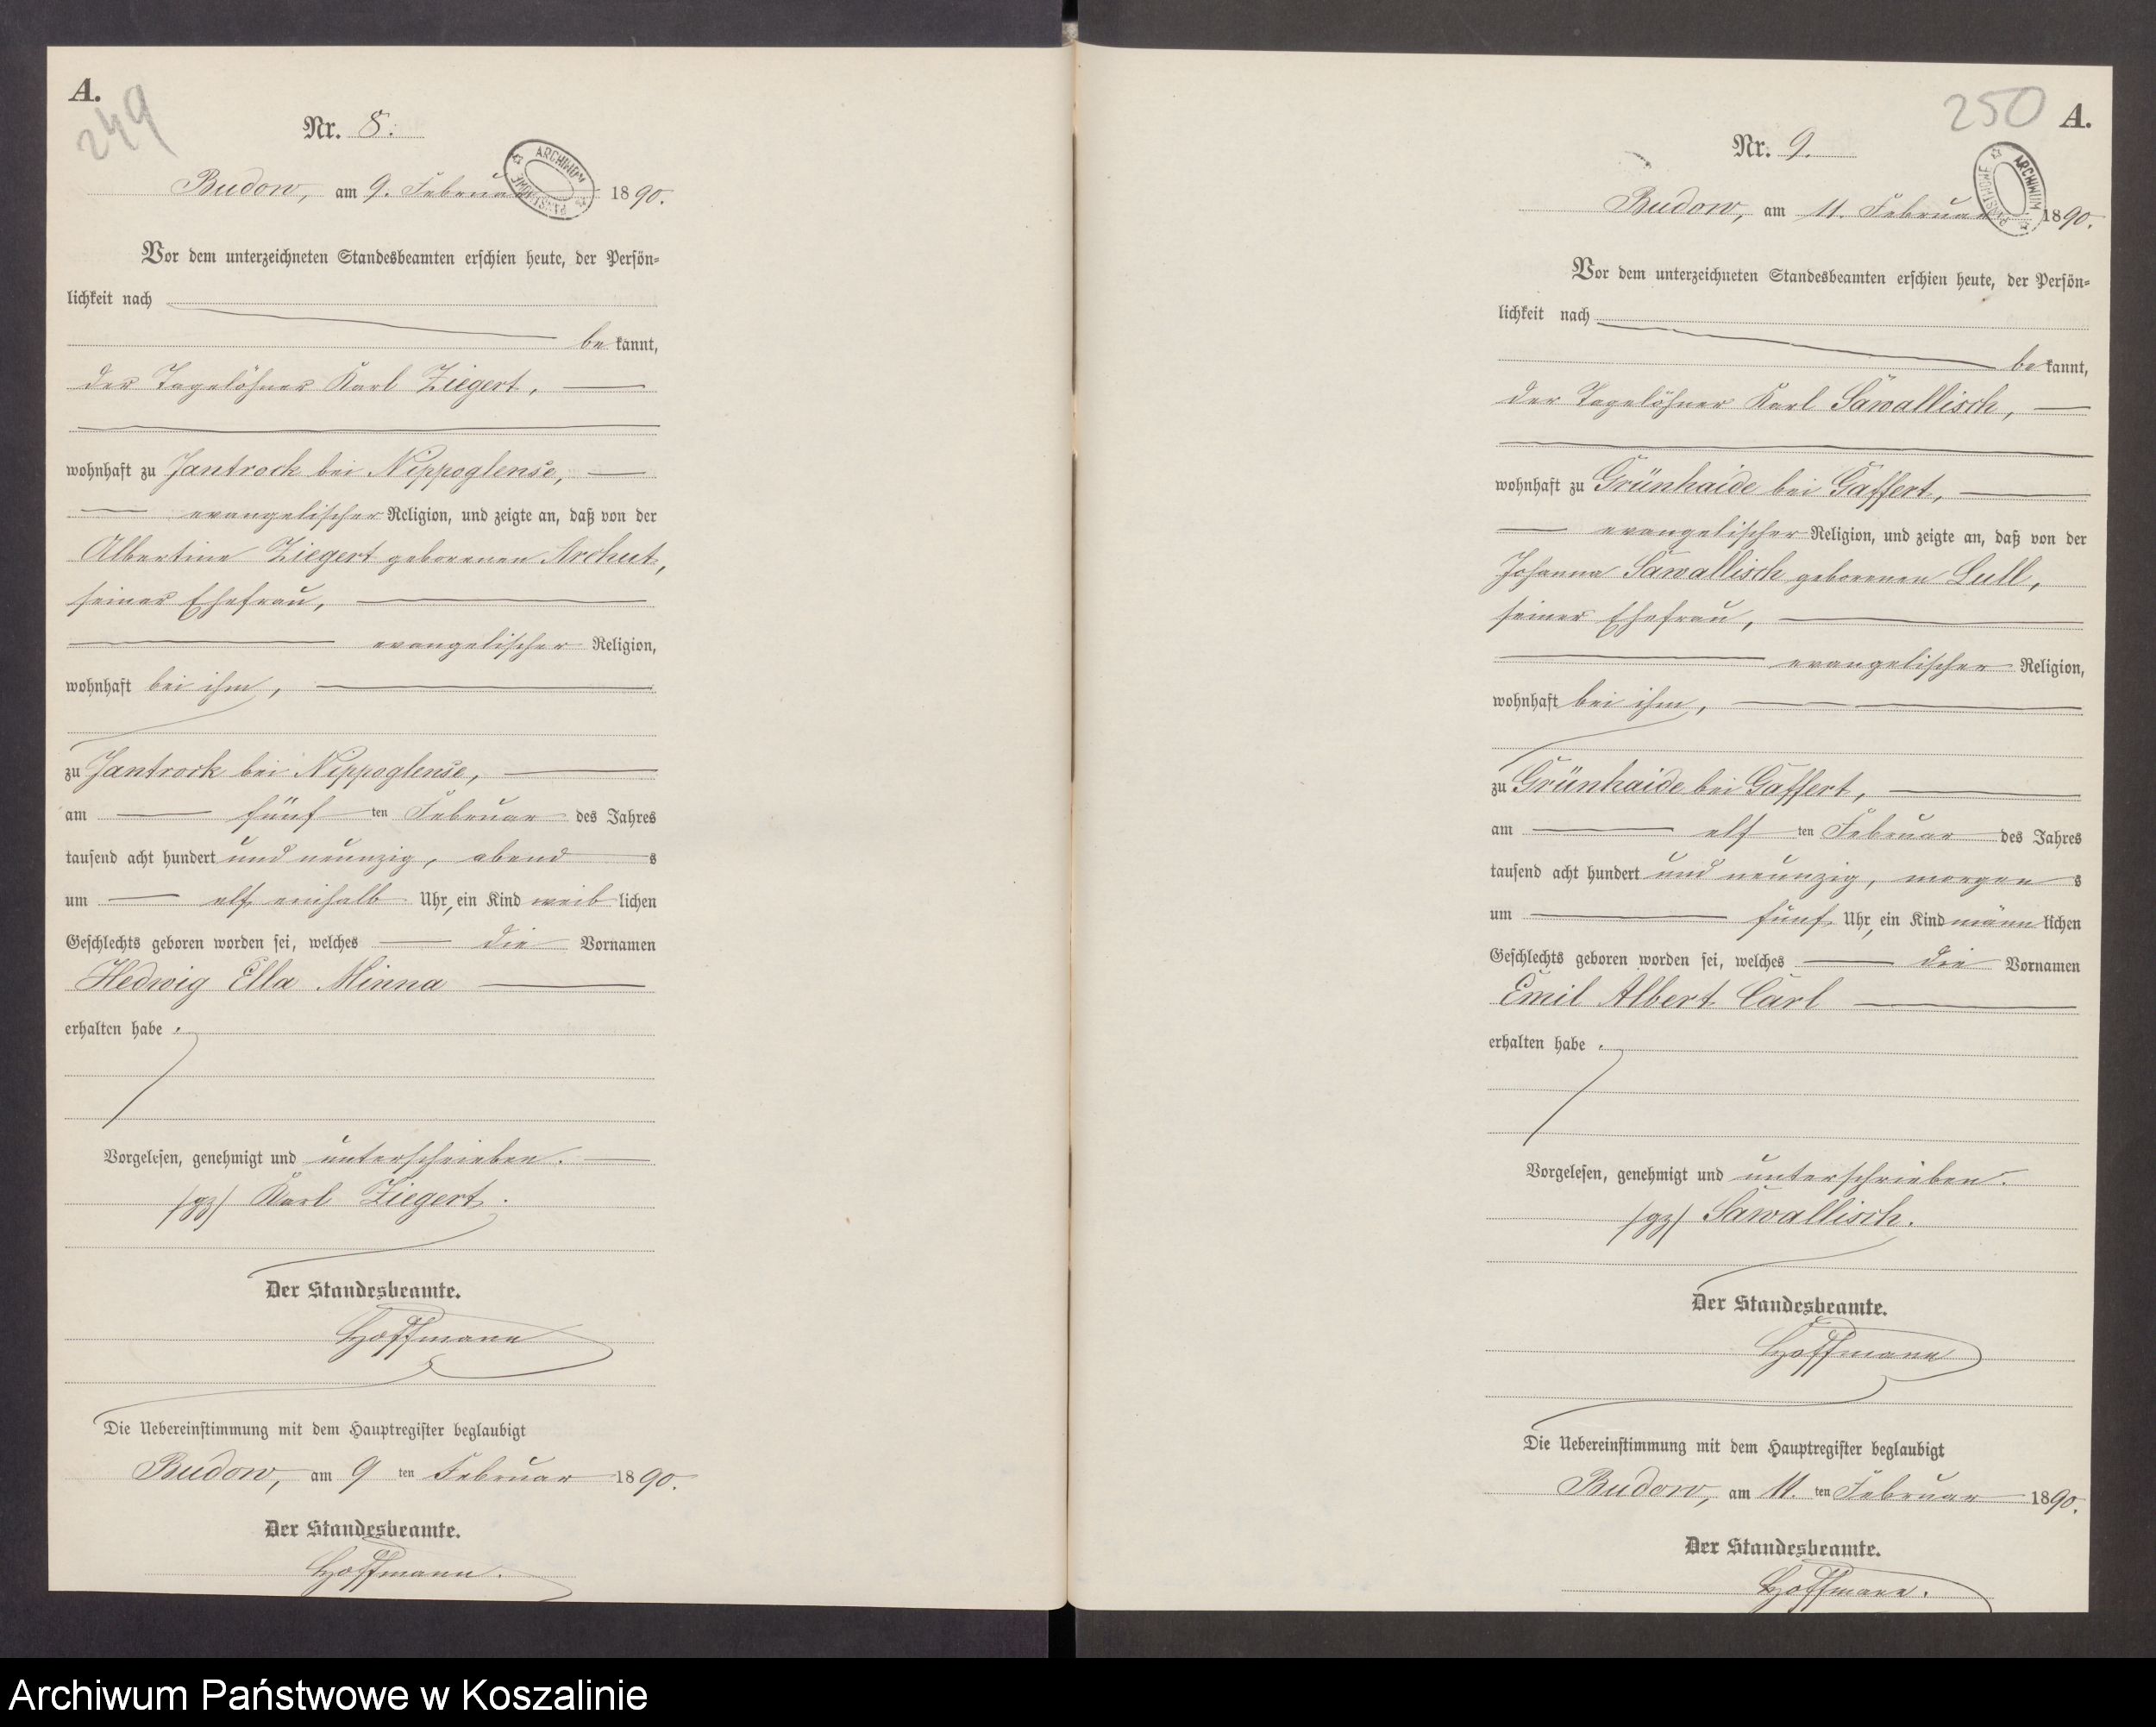 A.
249
Nr. 8.
ARCHIWUM PAŃSTWOWE
Budow, am 9. Februar 1890.
Vor dem unterzeichneten Standesbeamten erschien heute, der Persön-
lichkeit nach
be kannt,
der Tagelöhner Karl Ziegert,
wohnhaft zu Jantrock bei Nippoglense,
evangelischer Religion, und zeigte an, daß von der
Albertine Ziegert geborenen Archut,
seiner Ehefrau,
evangelischer Religion,
wohnhaft bei ihm,
zu Jantrock bei Nippoglense,
am fünf ten Februar des Jahres
tausend acht hundert und neunzig, abend s
um elf einhalb Uhr, ein Kind weib lichen
Geschlechts geboren worden sei, welches die Vornamen
Hedwig Ella Minna
erhalten habe.
Vorgelesen, genehmigt und unterschrieben.
/gz/ Karl Ziegert.
Der Standesbeamte.
Hoffmann
Die Uebereinstimmung mit dem Hauptregister beglaubigt
Budow, am 9 ten Februar 1890.
Der Standesbeamte.
Hoffmann.
250
A.
Nr. 9.
ARCHIWUM PAŃSTWOWE
Budow, am 11. Februar 1890.
Vor dem unterzeichneten Standesbeamten erschien heute, der Persön-
lichkeit nach
be kannt,
der Tagelöhner Karl Sawallisch,
wohnhaft zu Grünhaide bei Gaffert,
evangelischer Religion, und zeigte an, daß von der
Johanna Sawallisch geborenen Lull,
seiner Ehefrau,
evangelischer Religion,
wohnhaft bei ihm,
zu Grünhaide bei Gaffert,
am elf ten Februar des Jahres
tausend acht hundert und neunzig, morgen s
um fünf Uhr, ein Kind männ lichen
Geschlechts geboren worden sei, welches die Vornamen
Emil Albert Carl
erhalten habe.
Vorgelesen, genehmigt und unterschrieben.
/gz/ Sawallisch.
Der Standesbeamte.
Hoffmann
Die Uebereinstimmung mit dem Hauptregister beglaubigt
Budow, am 11. ten Februar 1890.
Der Standesbeamte.
Hoffmann.
Archiwum Państwowe w Koszalinie